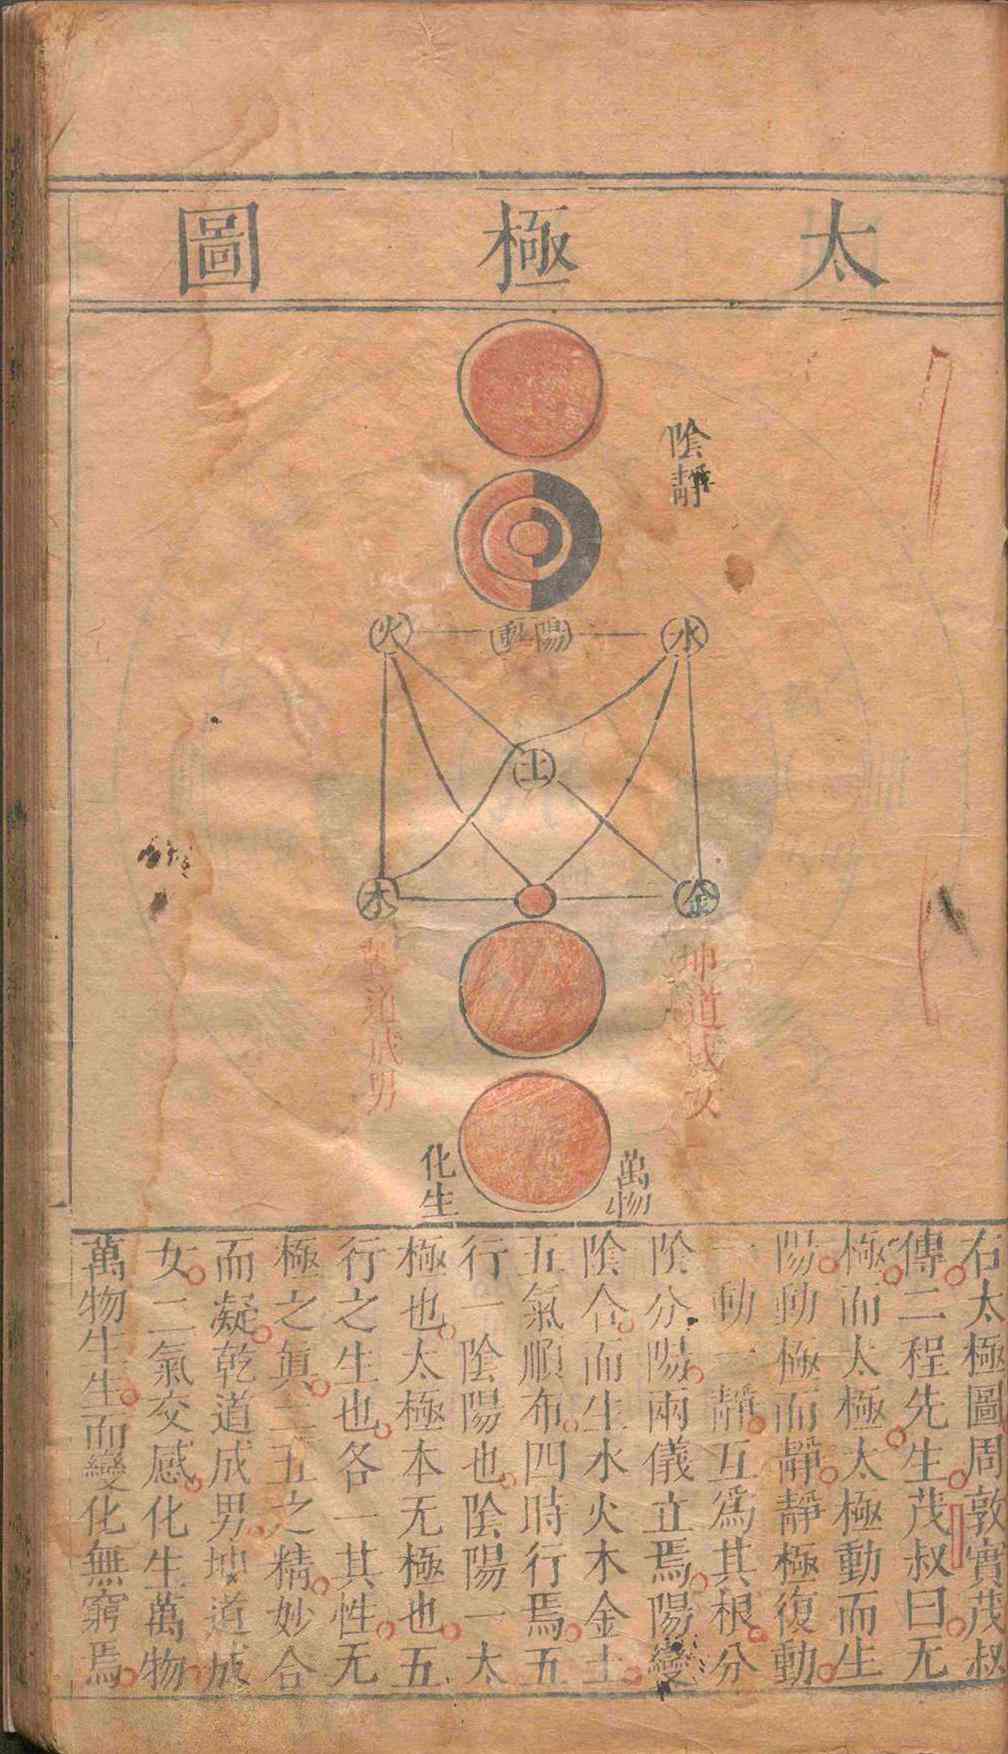 太極圖
陰靜
陽動
火
水
土
木
金
坤道成女
乾道成男
萬物
化生
右太極圖周敦實茂叔
傳二程先生茂叔曰无
極而太極太極動而生
陽動極而靜靜極復動
一動一靜互為其根分
陰分陽兩儀立焉陽變
陰合而生水火木金土
五氣順布四時行焉五
行一陰陽也陰陽一太
極也太極本无極也五
行之生也各一其性无
極之眞二五之精妙合
而凝乾道成男坤道成
女二氣交感化生萬物
萬物生生而變化無窮焉